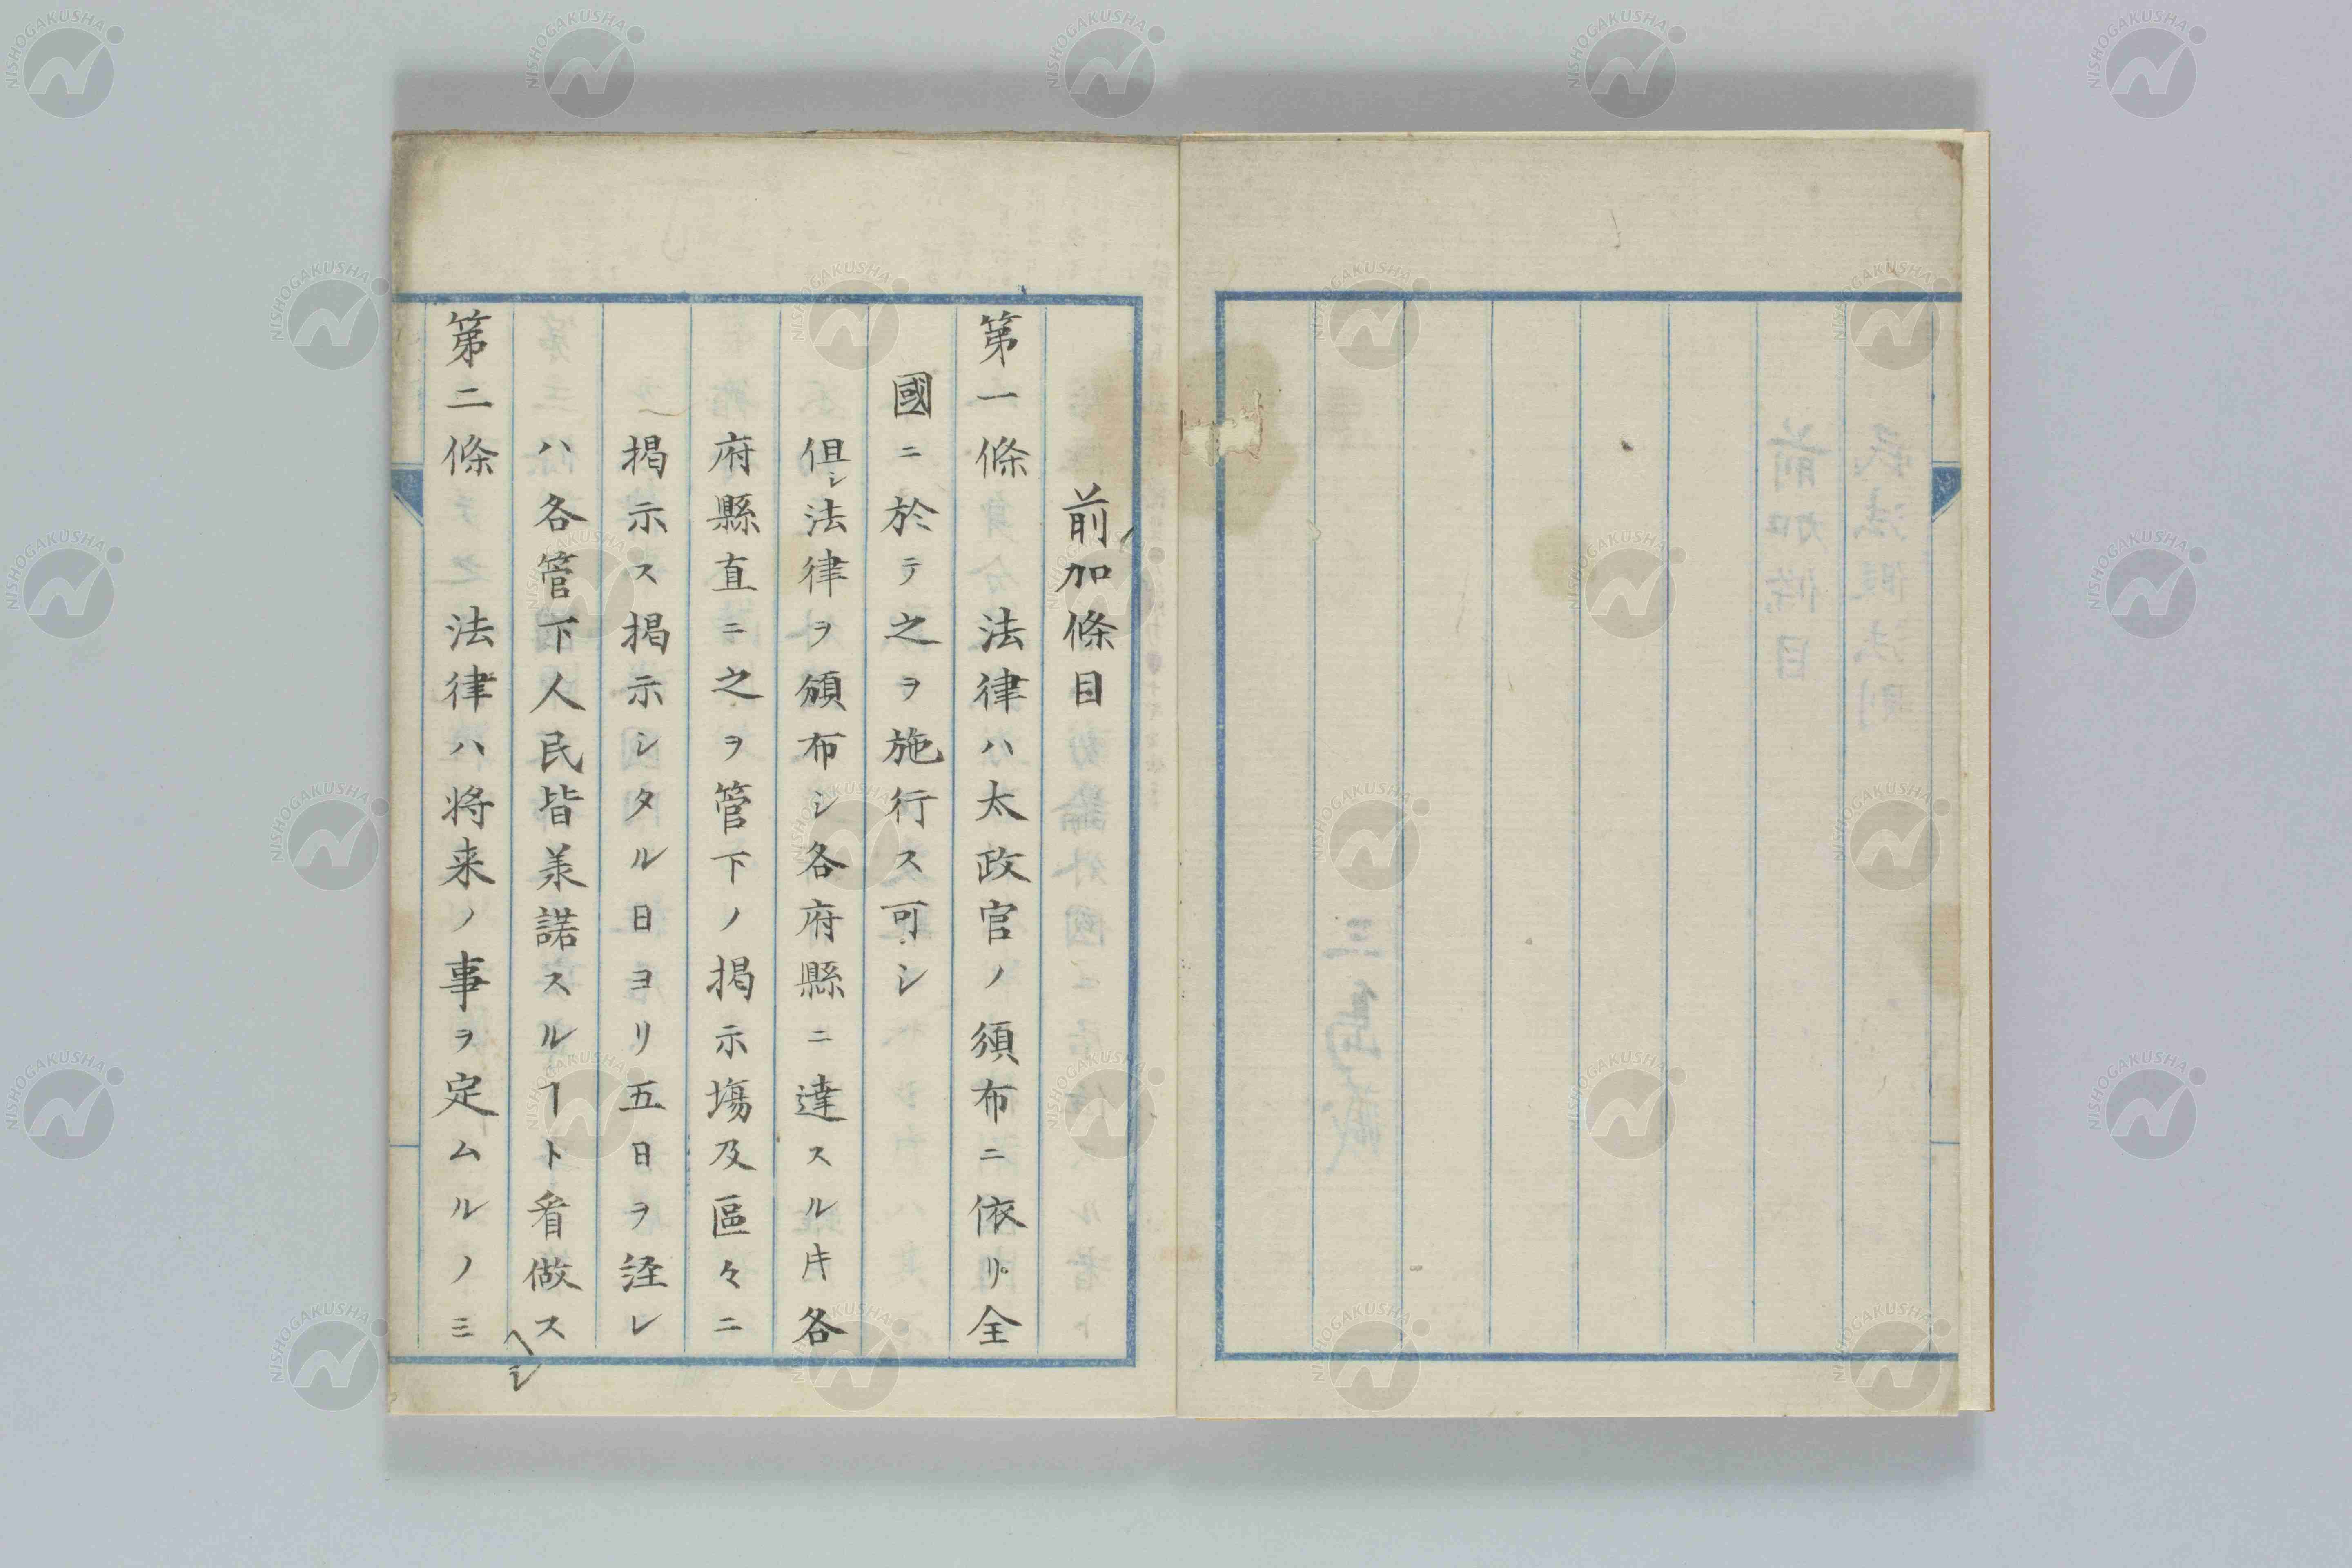 前加條目
第一條　法律ハ太政官ノ須布ニ依リ全
國ニ於テ之ヲ施行ス可シ
但シ法律ヲ頒布シ各府縣ニ達スル片各
府縣直ニ之ヲ管下ノ掲示塲及區々ニ
掲示ス掲示シタル日ヨリ五日ヲ経レ
ハ各管下人民皆承諾スルヿト看做ス
ヘシ
第二條　法律ハ将来ノ事ヲ定ムルノミ
NISHOGAKUSHA